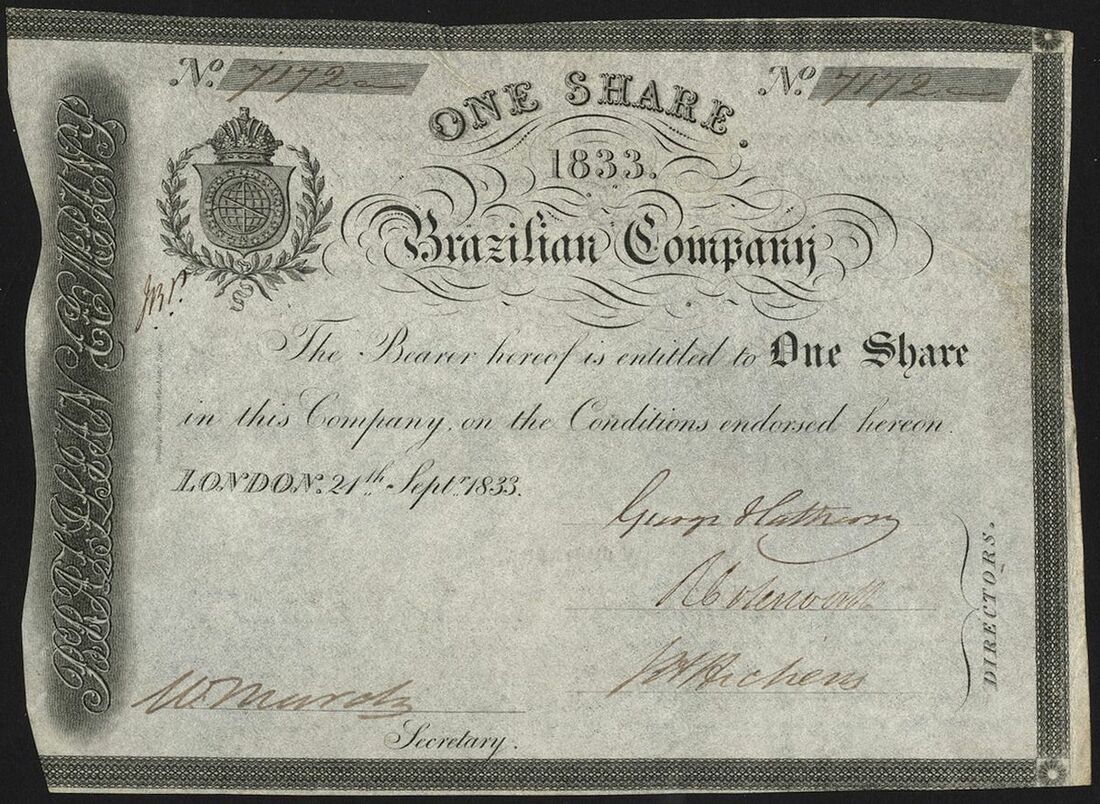 No. 7172 No. 7172
ONE SHARE.
1833.
Brazilian Company
BRAZILIAN COMPANY
The Bearer hereof is entitled to One Share
in this Company, on the Conditions endorsed hereon.
LONDON. 21th Septr. 1833.
George
DIRECTORS.
W. Murdoch
Secretary.